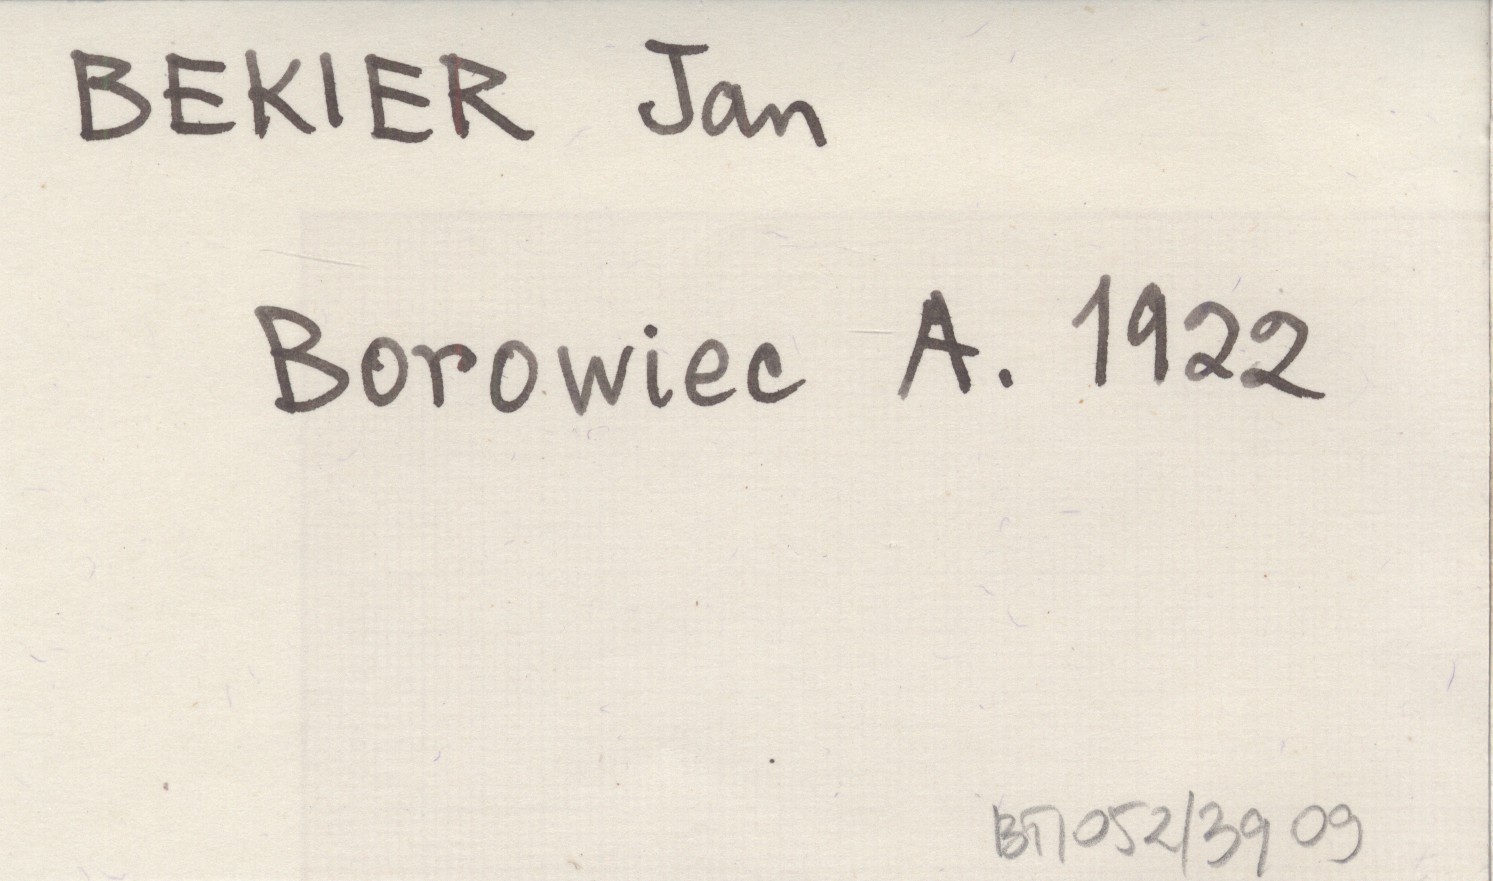 BEKIER Jan
Borowiec A. 1922
052/39 09